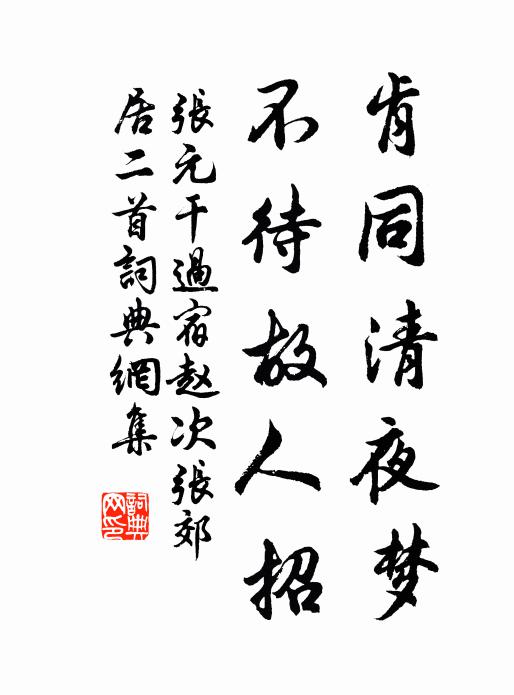 肯同清夜梦
不待故人招
張元干過宿赵次張郊
居二首詞典網集
詞典
网印